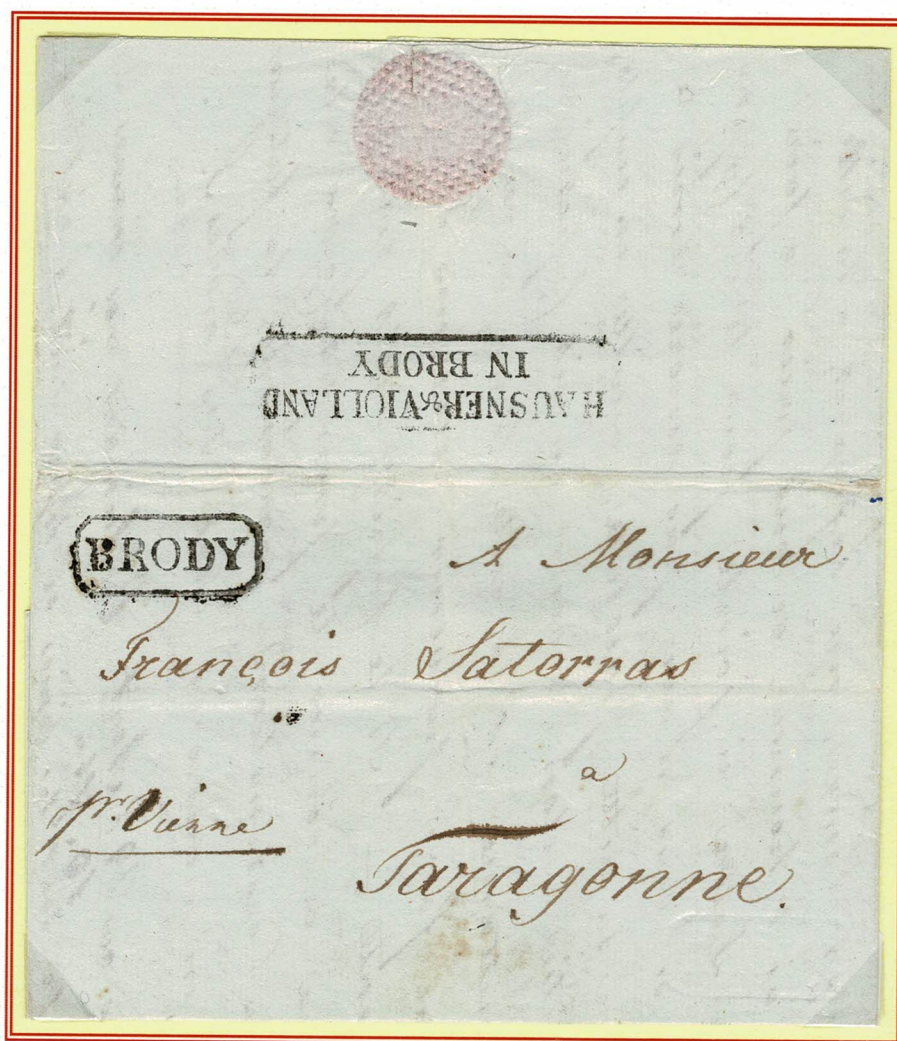 HAUSNER & VIOLLAND
IN BRODY
BRODY
A Monsieur
François Satorras
à
pr. Vienne
Taragonne.